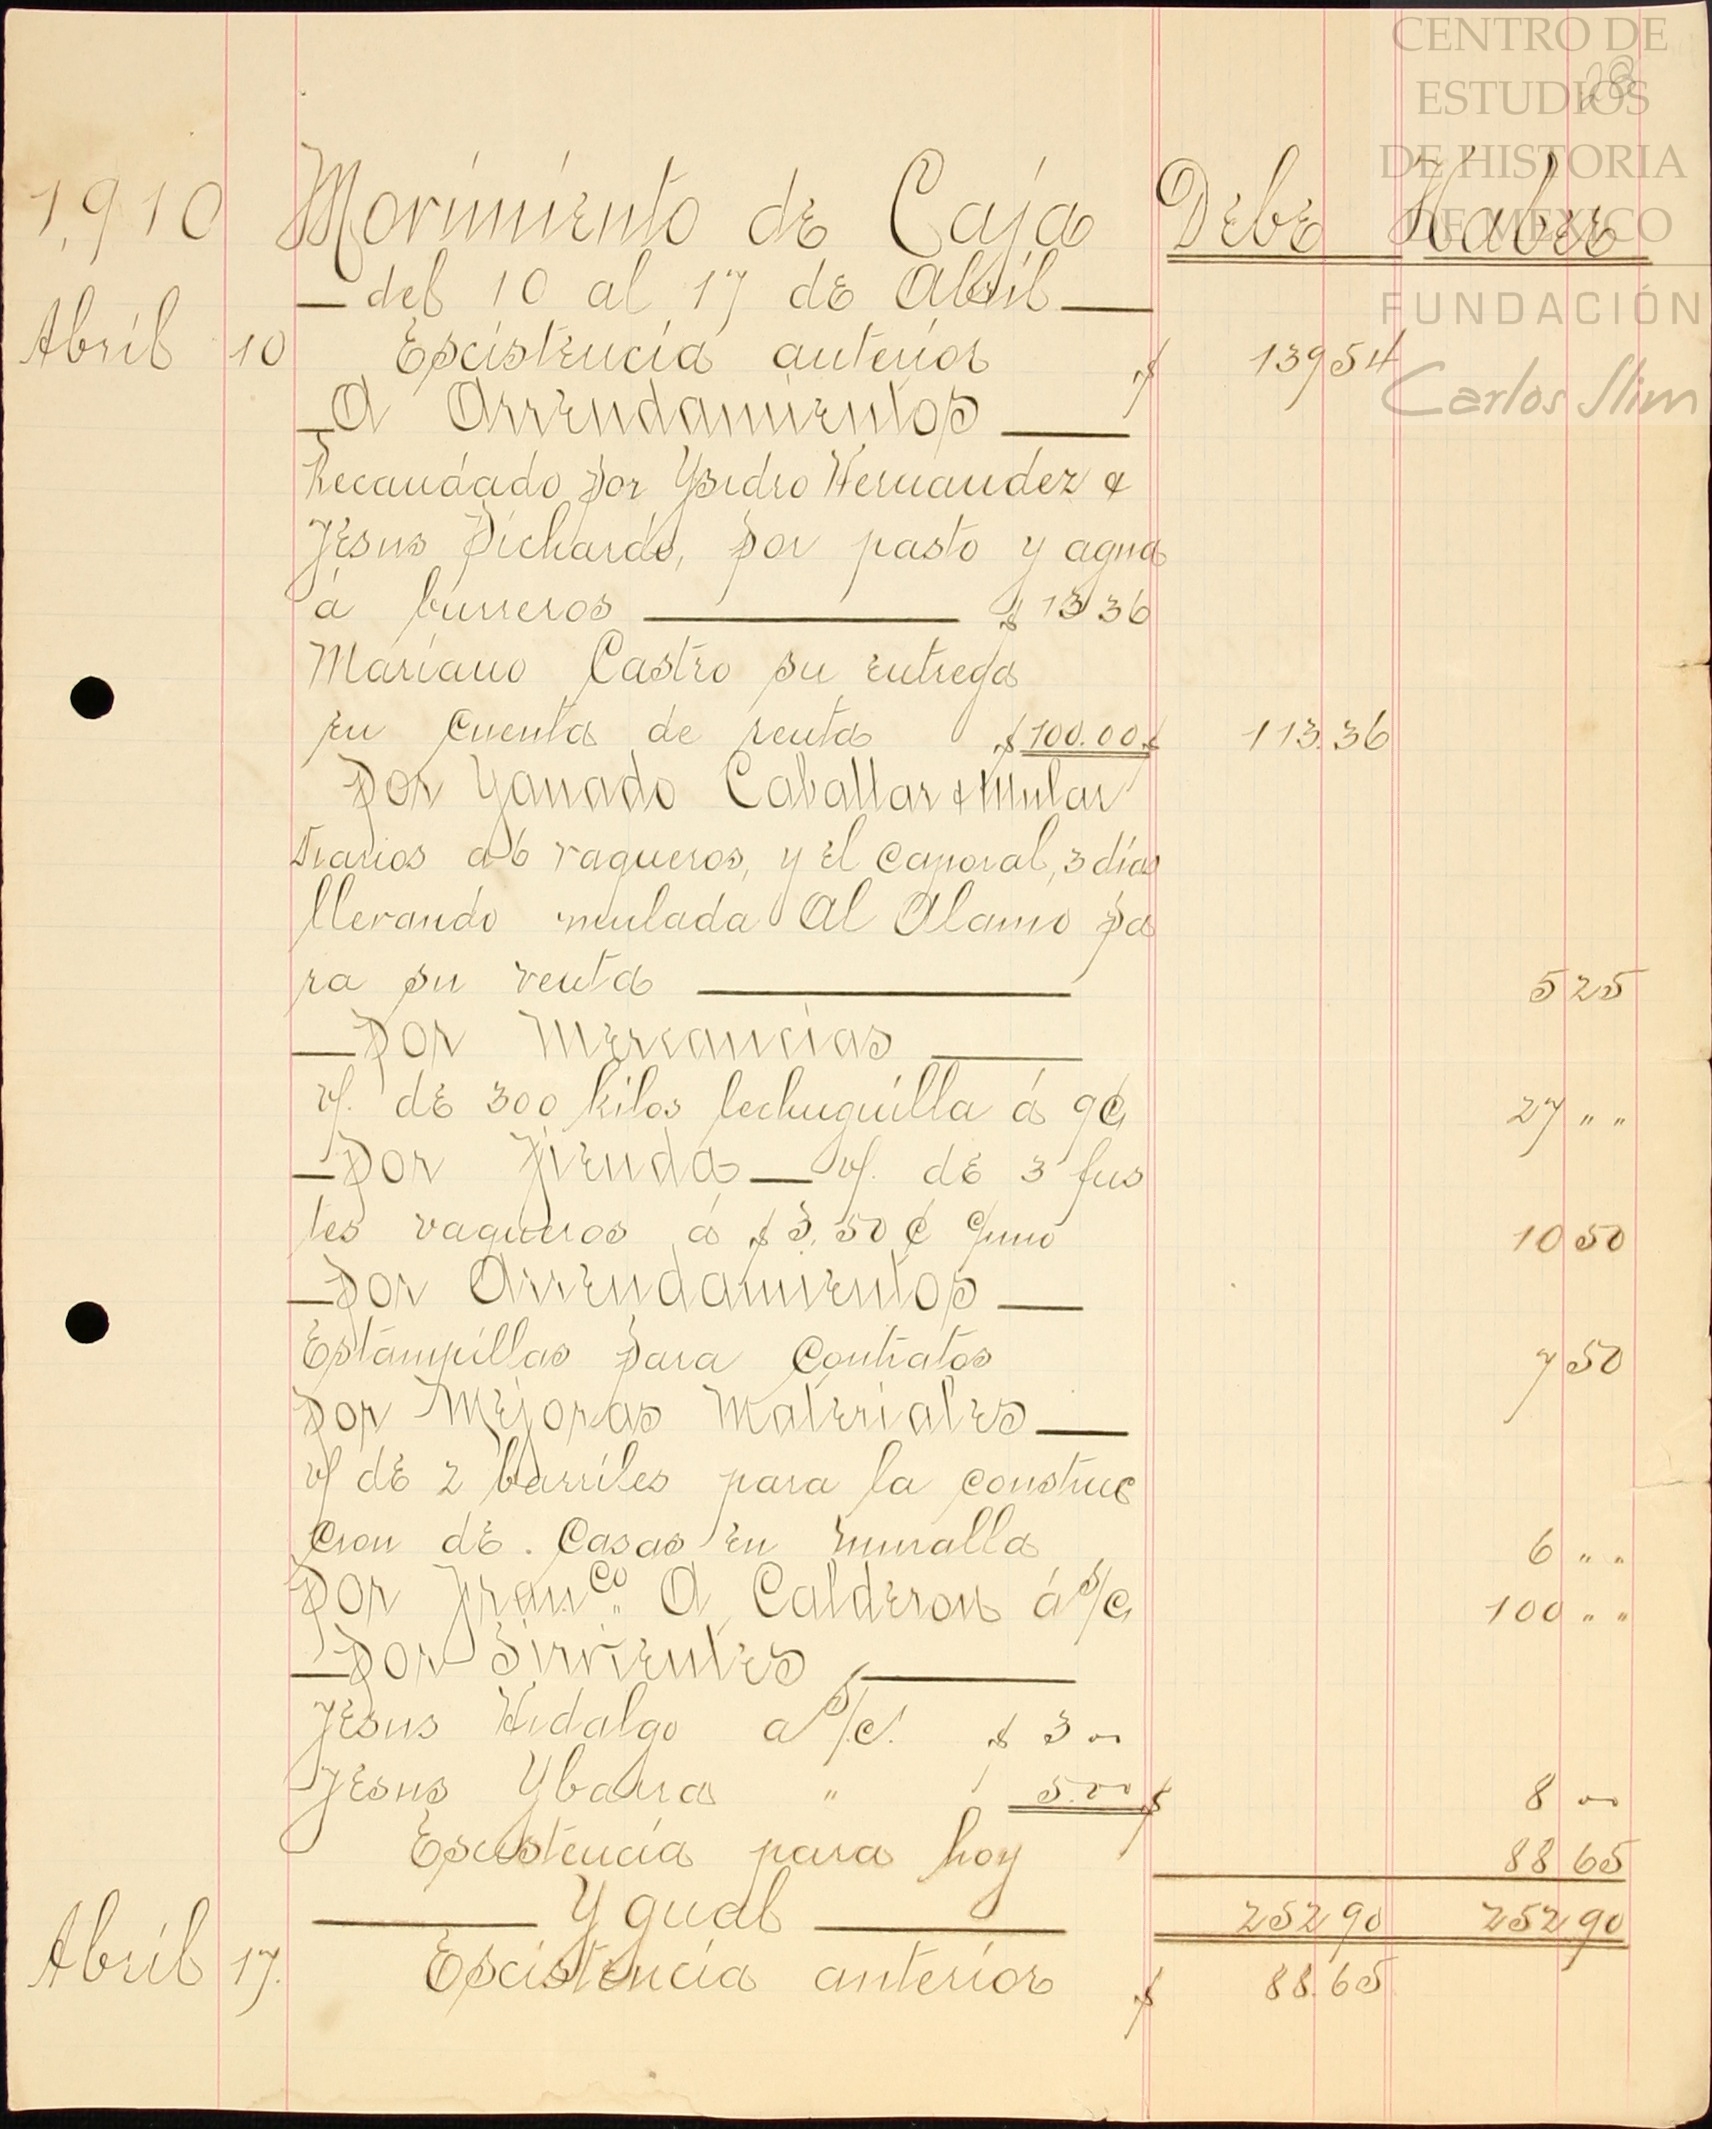 CENTRO DE
ESTUDIOS
DE HISTORIA
DE MÉXICO
FUNDACIÓN
Carlos Slim
28
1,910 Movimiento de Caja Debe Haber
del 10 al 17 de Abril
Abril 10 Escistencia anterior $ 139 54
A Arrendamientos
Recaudado por Ysidro Hernandez &
Jesus Pichardo, por pasto y agua
á burreros $ 13 36
Mariano Castro su entrega
en cuenta de renta $ 100.00 $ 113.36
Por Ganado Caballar & Mular
Diarios a 6 vaqueros, y el caporal, 3 dias
llevando mulada al Alamo pa
ra su venta 5 25
Por Mercancias
v/. de 300 kilos lechuguilla á 9¢ 27 " "
Por Tienda v/. de 3 fus
tes vaqueros á $ 3.50 ¢ c/uno 10 50
Por Arrendamientos
Estampillas para contratos 7 50
Por Mejoras Materiales
v/ de 2 barriles para la construc
cion de . casas en muralla 6 " "
Por Franco. A. Calderon á s/c 100 " "
Por Sirvientes
Jesus Hidalgo a s/c. $ 3 00
Jesus Ybarra " 5.00 $ 8 00
Escistencia para hoy 88 65
Ygual 252 90 252 90
Abril 17. Escistencia anterior $ 88.65